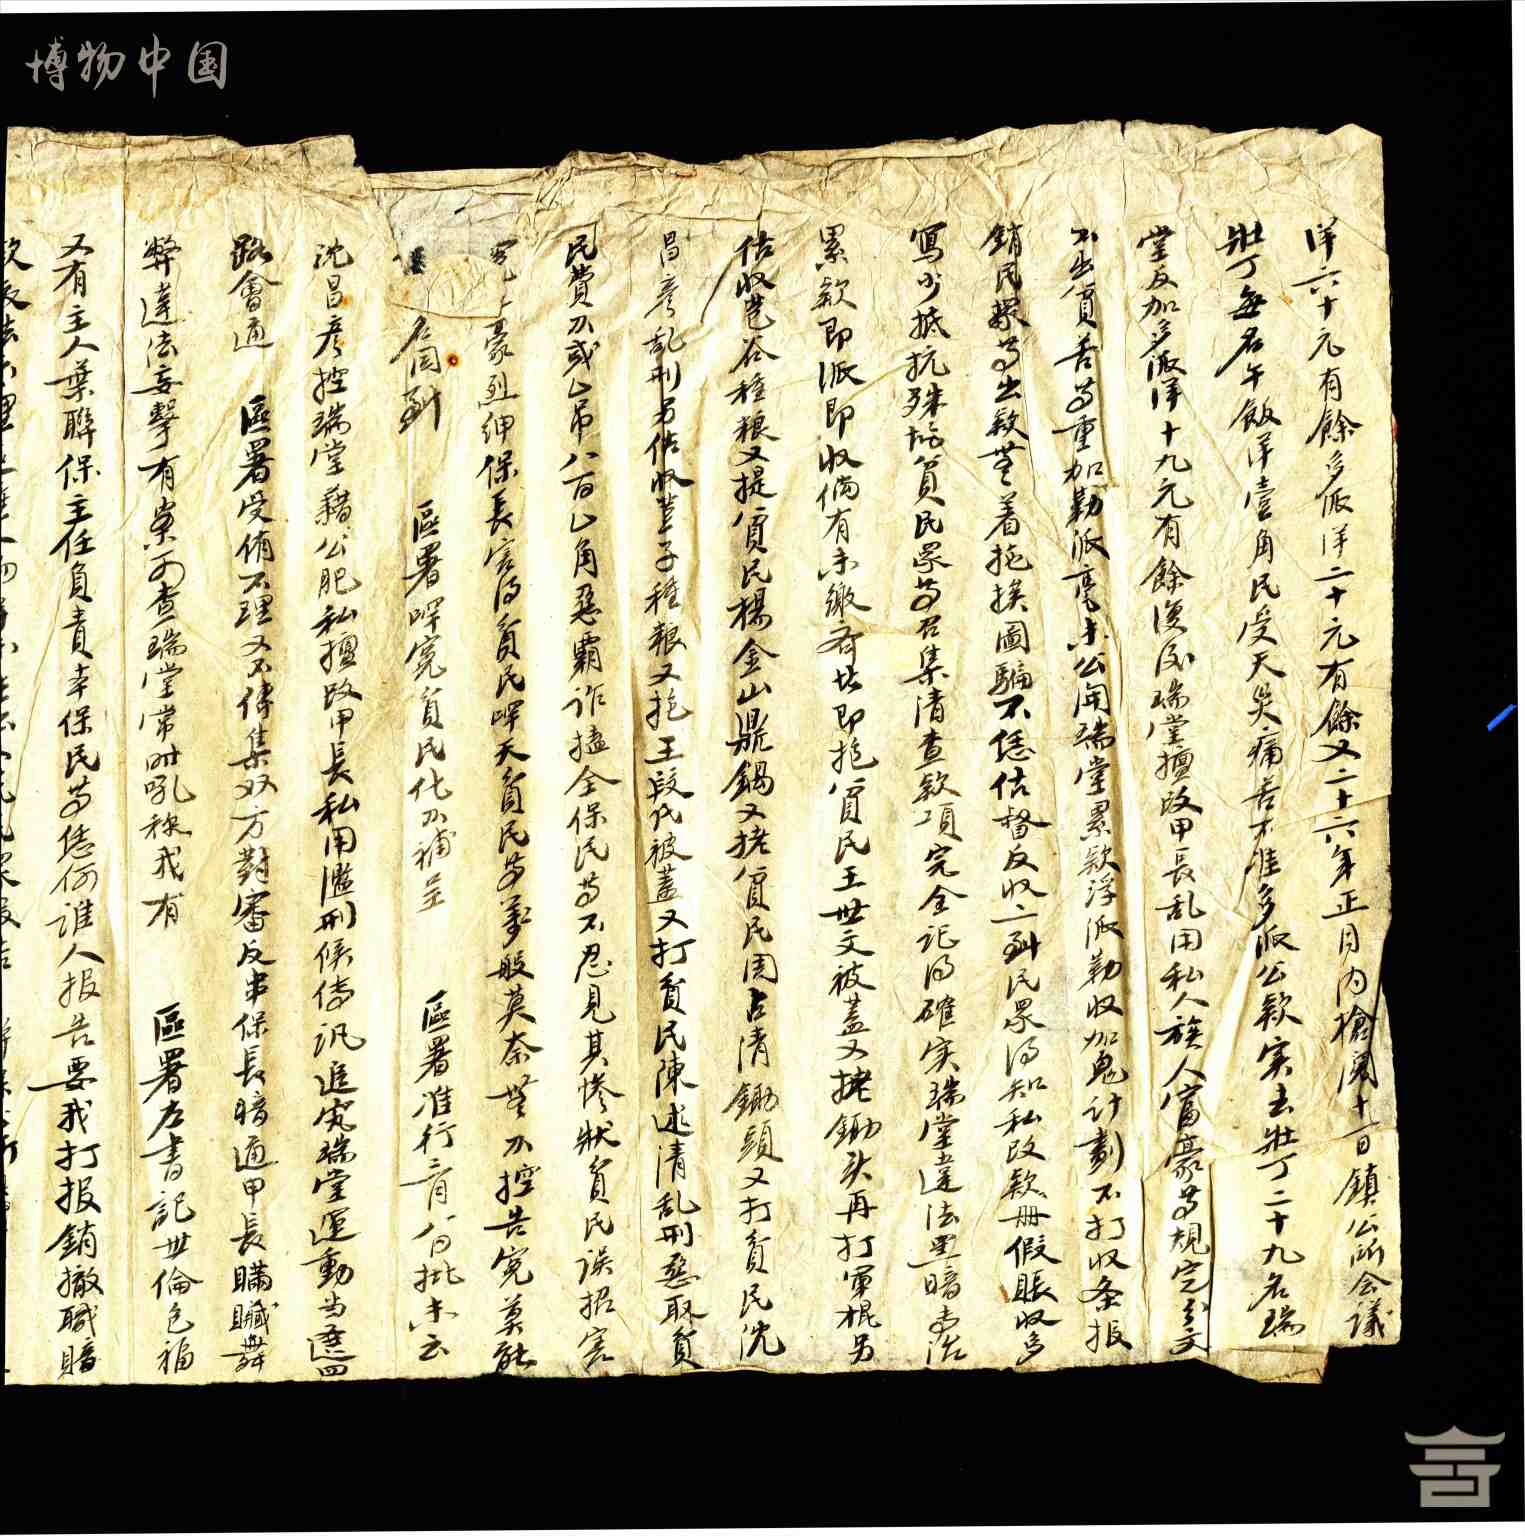 博物中国
洋六十元有餘多派洋二十元有餘又二十六年正月內檢閱十一日鎮公所会議
壯丁每名午飯洋壹角民受天災痛苦不准多派公款实去壯丁二十九名瑞
堂反加多派洋十九元有餘後因瑞堂擅改甲長乱用私人族人富豪等規完分文
不出貧苦等重加勒派毫未公開瑞堂累款浮派勒收加鬼计劃不打收条报
銷民眾等出款無着挖挨圖騙不恁估督反收二到民眾得知私改款册假賬收多
寫少抵抗殊流貧民眾等召集清查款項完全記得確实瑞堂違法黑暗
累款即派即收倘有未繳齐此即拖貧民王世文被蓋又搂鋤头再打軍棍另
估收苞谷種粮又提貧民楊金山鼎鍋又搂貧民周占清鋤頭又打貧民沈
昌彦乱刑另估收荳子種粮又拖王段氏被蓋又打貧民陳述清乱刑惡取貧
民費刀或乙吊八百乙角惡霸詐搕全保民等不忍見其惨狀貧民誤招害
豪烈紳保長害得貧民哻天貧民等萬般莫奈無刀控告冤莫能
區署哻冤貧民化刀補呈 區署准行二月八日批未云
沈昌彦控瑞堂藉公肥私擅改甲長私用濫刑候傳訊追究瑞堂運動当遣四
路會通 區署受賄不理又不傳集双方對審反串保長暗通甲長瞞贓舞
弊違法妄擊有案可查瑞堂常时吼称我有 區署左書記世倫包福
又有主人葉聯保主任負責本保民等恁何誰人报告要我打报銷撤職賠